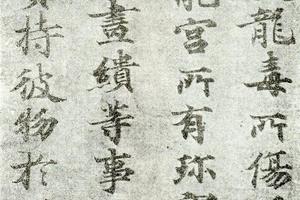 龍毒所傷
宮所有珎
畫繢等事
持彼物於